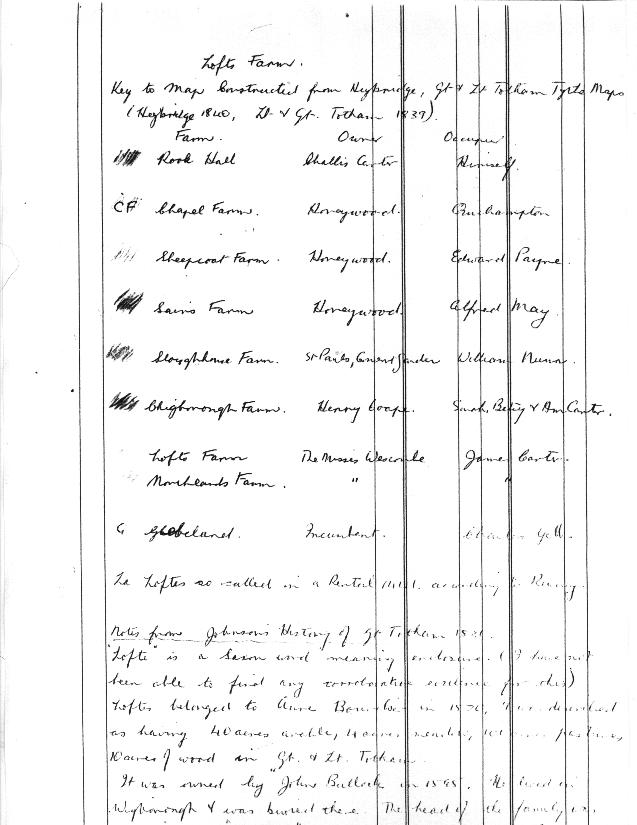 Lofts Farm.
Key to Map Constructed from Heybridge, Gt & Lt Totham Tythe Maps
(Heybridge 1840, Lt & Gt. Totham 1839).
Farm. Owner Occupier
Rook Hall Challis Carter Himself.
CF Chapel Farm. Honeywood.
Sheepcoat Farm. Honeywood. Edward Payne.
Sains Farm Honeywood Alfred May.
Sloughhouse Farm. St Pauls, William Nunn.
Chigborough Farm. Henry Coape. Sarah, Betsy & Ann Carter.
Lofts Farm The Misses Wescombe James Carter.
Moorlands Farm. " "
G Glebeland. Incumbent. Charles
La Loftes so called in a Rental according to Reaney.
Notes from Johnson's History of Gt Totham
"Lofte" is a Saxon word meaning enclosure. (I have not
been able to find any corroborative evidence for this)
Loftes belonged to Anne in described
as having 40 acres arable, pasture,
10 acres of wood in Gt. & Lt. Totham.
It was owned by John Bullock in He lived in
Wigborough & was buried there. The head of the family